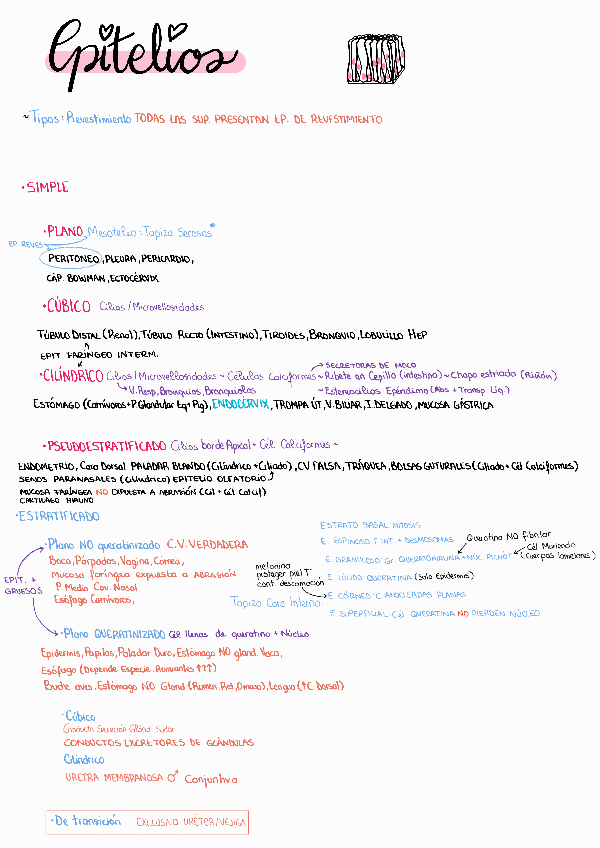 Epitelios
~Tipos: Revestimiento TODAS LAS SUP. PRESENTAN EP. DE REVESTIMIENTO
•SIMPLE
•PLANO Mesotelio: Tapiza Serosas*
EP. REVES
PERITONEO, PLEURA, PERICARDIO,
CÁP. BOWMAN, ECTOCÉRVIX
•CÚBICO Cilios/Microvellosidades
TÚBULO DISTAL (Renal), TÚBULO RECTO (INTESTINO), TIROIDES, BRONQUIO, LOBULILLO HEP
EPIT. FARÍNGEO INTERM.
→SECRETORAS DE MOCO
•CILÍNDRICO Cilios/Microvellosidades ~ Células Caliciformes ~ Ribete en Cepillo (intestino) ~ Chapa estriada (Riñón)
V. Resp, Bronquios, Bronquiolos
~ Estereocilios Epéndimo (Abs + Transp Líq.)
ESTÓMAGO (Carnívoros+P.Glandular Eq+Pig), ENDOCÉRVIX, TROMPA ÚT, V. BILIAR, I. DELGADO, MUCOSA GÁSTRICA
•PSEUDOESTRATIFICADO Cilios borde Apical + Cél. Caliciformes ~
ENDOMETRIO, Cara Dorsal PALADAR BLANDO (Cilíndrico + Ciliado), CV FALSA, TRÁQUEA, BOLSAS GUTURALES (Ciliado + Cél Caliciformes)
SENOS PARANASALES (Cilíndrico) EPITELIO OLFATORIO
MUCOSA FARÍNGEA NO EXPUESTA A ABRASIÓN (Cil + Cél Calcif)
CARTÍLAGO HIALINO
•ESTRATIFICADO
EPIT. + GRUESOS
•Plano NO queratinizado C.V. VERDADERA
Boca, Párpados, Vagina, Córnea,
Mucosa faríngea expuesta a ABRASIÓN
P. Media Cav. Nasal
Esófago Carnívoros,
Tapiza Cara Interna
ESTRATO BASAL: MITOSIS
E. ESPINOSO: F. INT + DESMOSOMAS
Queratina NO fibrilar
E. GRANULOSO: Gr. QUERATOHIALINA + NÚC. PICNÓT
Cél Muriendo
(Cuerpos lamelares)
melanina
proteger piel Tª
cont. descamación
E. LÚCIDO: QUERATINA (Solo Epidermis)
E. CÓRNEO: C ANUCLEADAS PLANAS
E. SUPERFICIAL: Cél. QUERATINA NO PIERDEN NÚCLEO
•Plano QUERATINIZADO Cél llenas de queratina + Núcleo
Epidermis, Papilas, Paladar Duro, Estómago NO gland. Vaca,
Esófago (Depende Especie. Rumiantes ↑↑↑)
Buche aves. Estómago NO Gland (Rumen, Ret, Omaso), Lengua (↑C Dorsal)
•Cúbico
Conducto Secreción Gland. Sudor
CONDUCTOS EXCRETORES DE GLÁNDULAS
Cilíndrico
URETRA MEMBRANOSA ♂ Conjuntiva
•De transición EXCLUSIVO URÉTER/VEJIGA